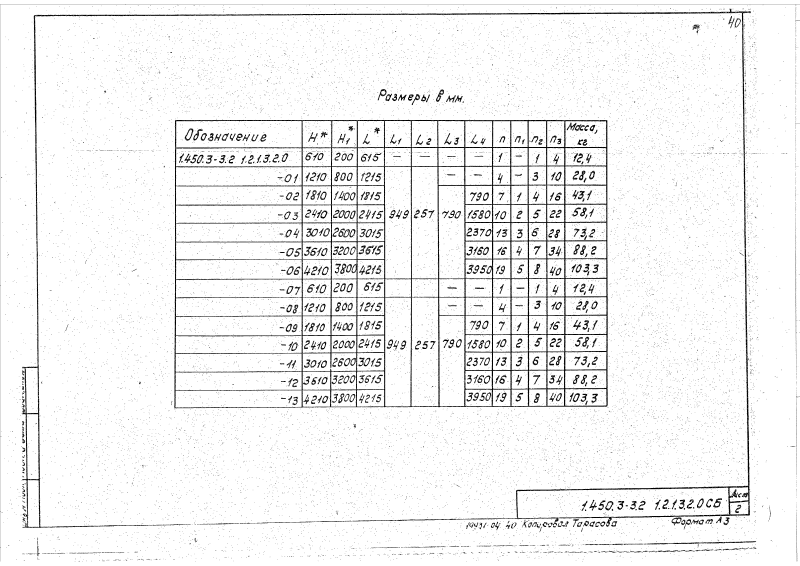 40
Размеры в мм.
Обозначение H* H₁* L* L₁ L₂ L₃ L₄ n n₁ n₂ n₃ Масса, кг
1.450.3-3.2 1.2.1.3.2.0 610 200 615 — — — — 1 — 1 4 12,4
-01 1210 800 1215 — — 4 — 3 10 28,0
-02 1810 1400 1815 790 7 1 4 16 43,1
-03 2410 2000 2415 949 257 790 1580 10 2 5 22 58,1
-04 3010 2600 3015 2370 13 3 6 28 73,2
-05 3610 3200 3615 3160 16 4 7 34 88,2
-06 4210 3800 4215 3950 19 5 8 40 103,3
-07 610 200 615 — — 1 — 1 4 12,4
-08 1210 800 1215 — — 4 — 3 10 28,0
-09 1810 1400 1815 790 7 1 4 16 43,1
-10 2410 2000 2415 949 257 790 1580 10 2 5 22 58,1
-11 3010 2600 3015 2370 13 3 6 28 73,2
-12 3610 3200 3615 3160 16 4 7 34 88,2
-13 4210 3800 4215 3950 19 5 8 40 103,3
1.450.3-3.2 1.2.1.3.2.0 СБ
Лист
2
04 40 Копировал Тарасова Формат А3